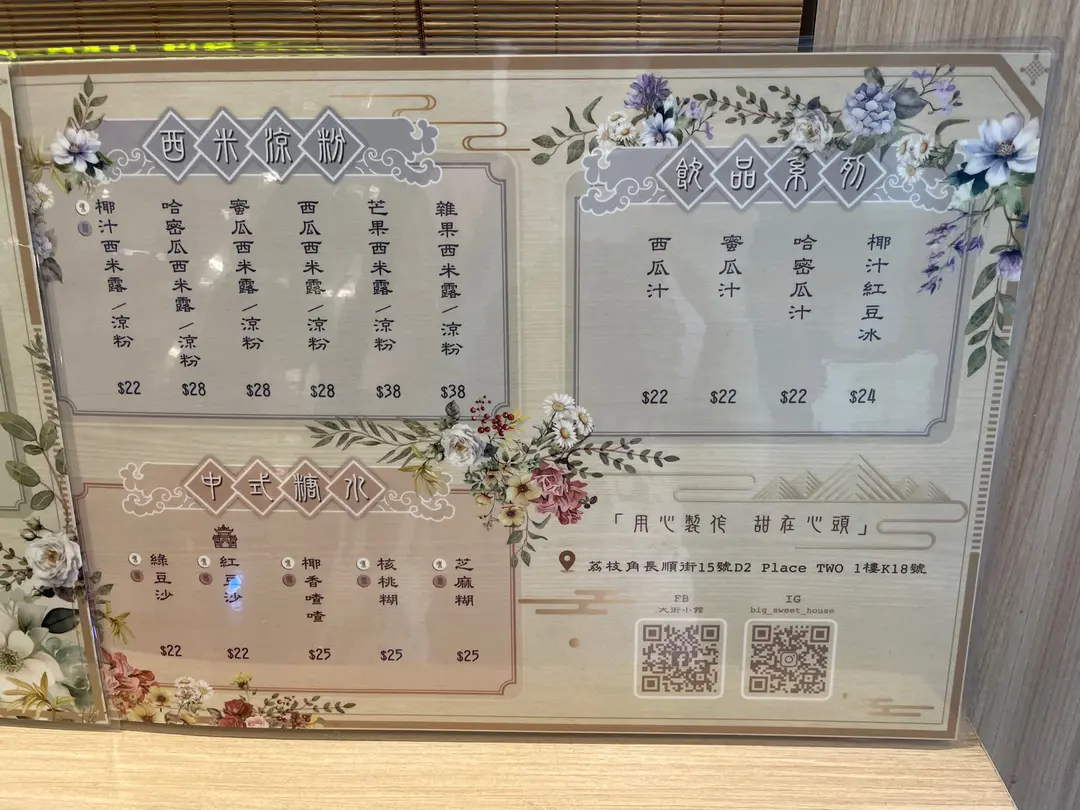 西米涼粉
雜果西米露/涼粉
$38
芒果西米露/涼粉
$38
西瓜西米露/涼粉
$28
蜜瓜西米露/涼粉
$28
哈密瓜西米露/涼粉
$28
椰汁西米露/涼粉
$22
飲品系列
椰汁紅豆冰
$24
哈密瓜汁
$22
蜜瓜汁
$22
西瓜汁
$22
中式糖水
芝麻糊
$25
核桃糊
$25
椰香喳喳
$25
紅豆沙
$22
綠豆沙
$22
「用心製作 甜在心頭」
荔枝角長順街15號D2 Place TWO 1樓K18號
FB
IG
big_sweet_house